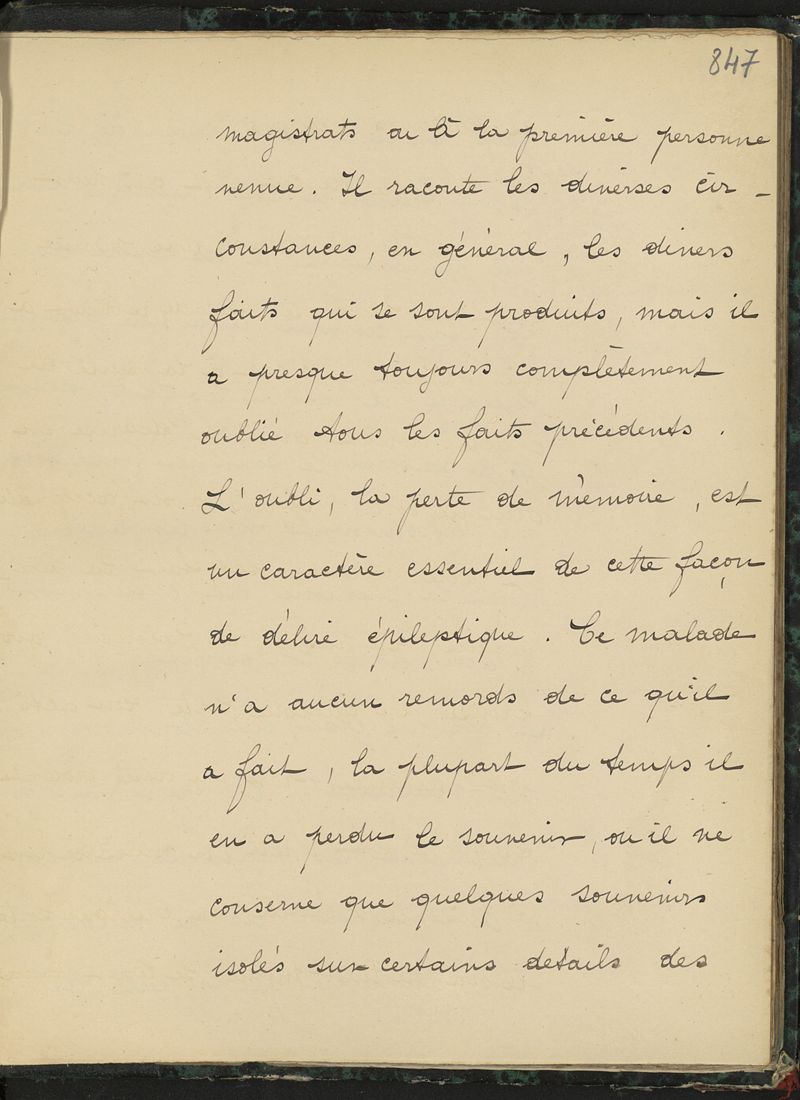 847
magistrats ou à la première personne
venue. Il raconte les diverses cir-
constances, en général, les divers
faits qui se sont produits, mais il
a presque toujours complètement
oublié tous les faits précédents.
L'oubli, la perte de mémoire, est
un caractère essentiel de cette façon
de délire épileptique. Ce malade
n'a aucun remords de ce qu'il
a fait, la plupart du temps il
en a perdu le souvenir, ou il ne
conserve que quelques souvenirs
isolés sur certains détails des